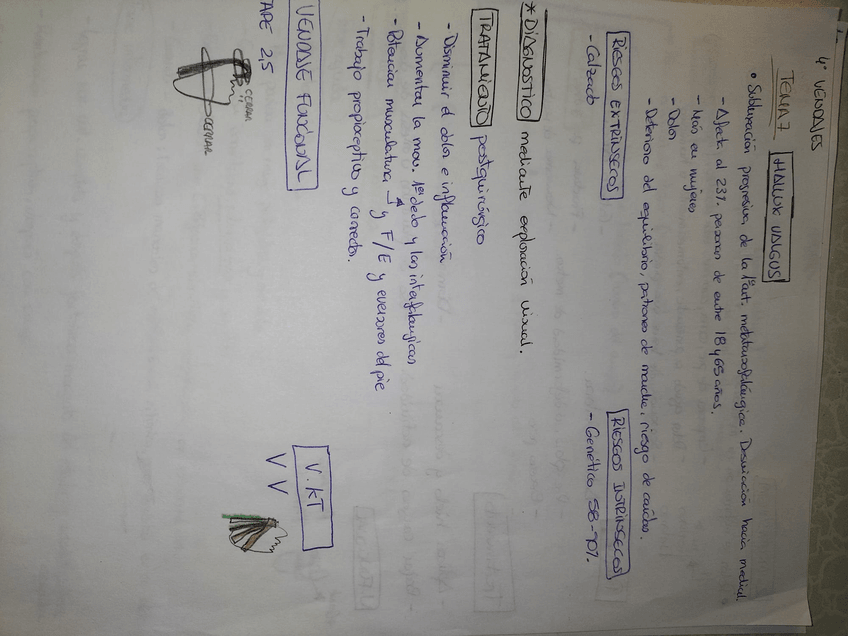 4º VENDAJES
TEMA 7 HALLUX VALGUS
• Subluxación progresiva de la 1ª art. metatarsofalángica. Desviación hacia medial.
- Afecta al 23% personas de entre 18 y 65 años.
- Más en mujeres
- Dolor
- Deterioro del equilibrio, patrones de marcha, riesgo de caídas.
RIESGOS EXTRÍNSECOS RIESGOS INTRÍNSECOS
- Calzado - Genético 58-90%.
* DIAGNÓSTICO mediante exploración visual.
TRATAMIENTO postquirúrgico
- Disminuir el dolor e inflamación
- Aumentar la mov. 1er dedo y las interfalángicas
- Potenciar musculatura y F/E y eversores del pie.
- Trabajo propioceptivo y correcto.
VENDAJE FUNCIONAL V. KT
TAPE 2,5 V V
CERRAR
CERRAR